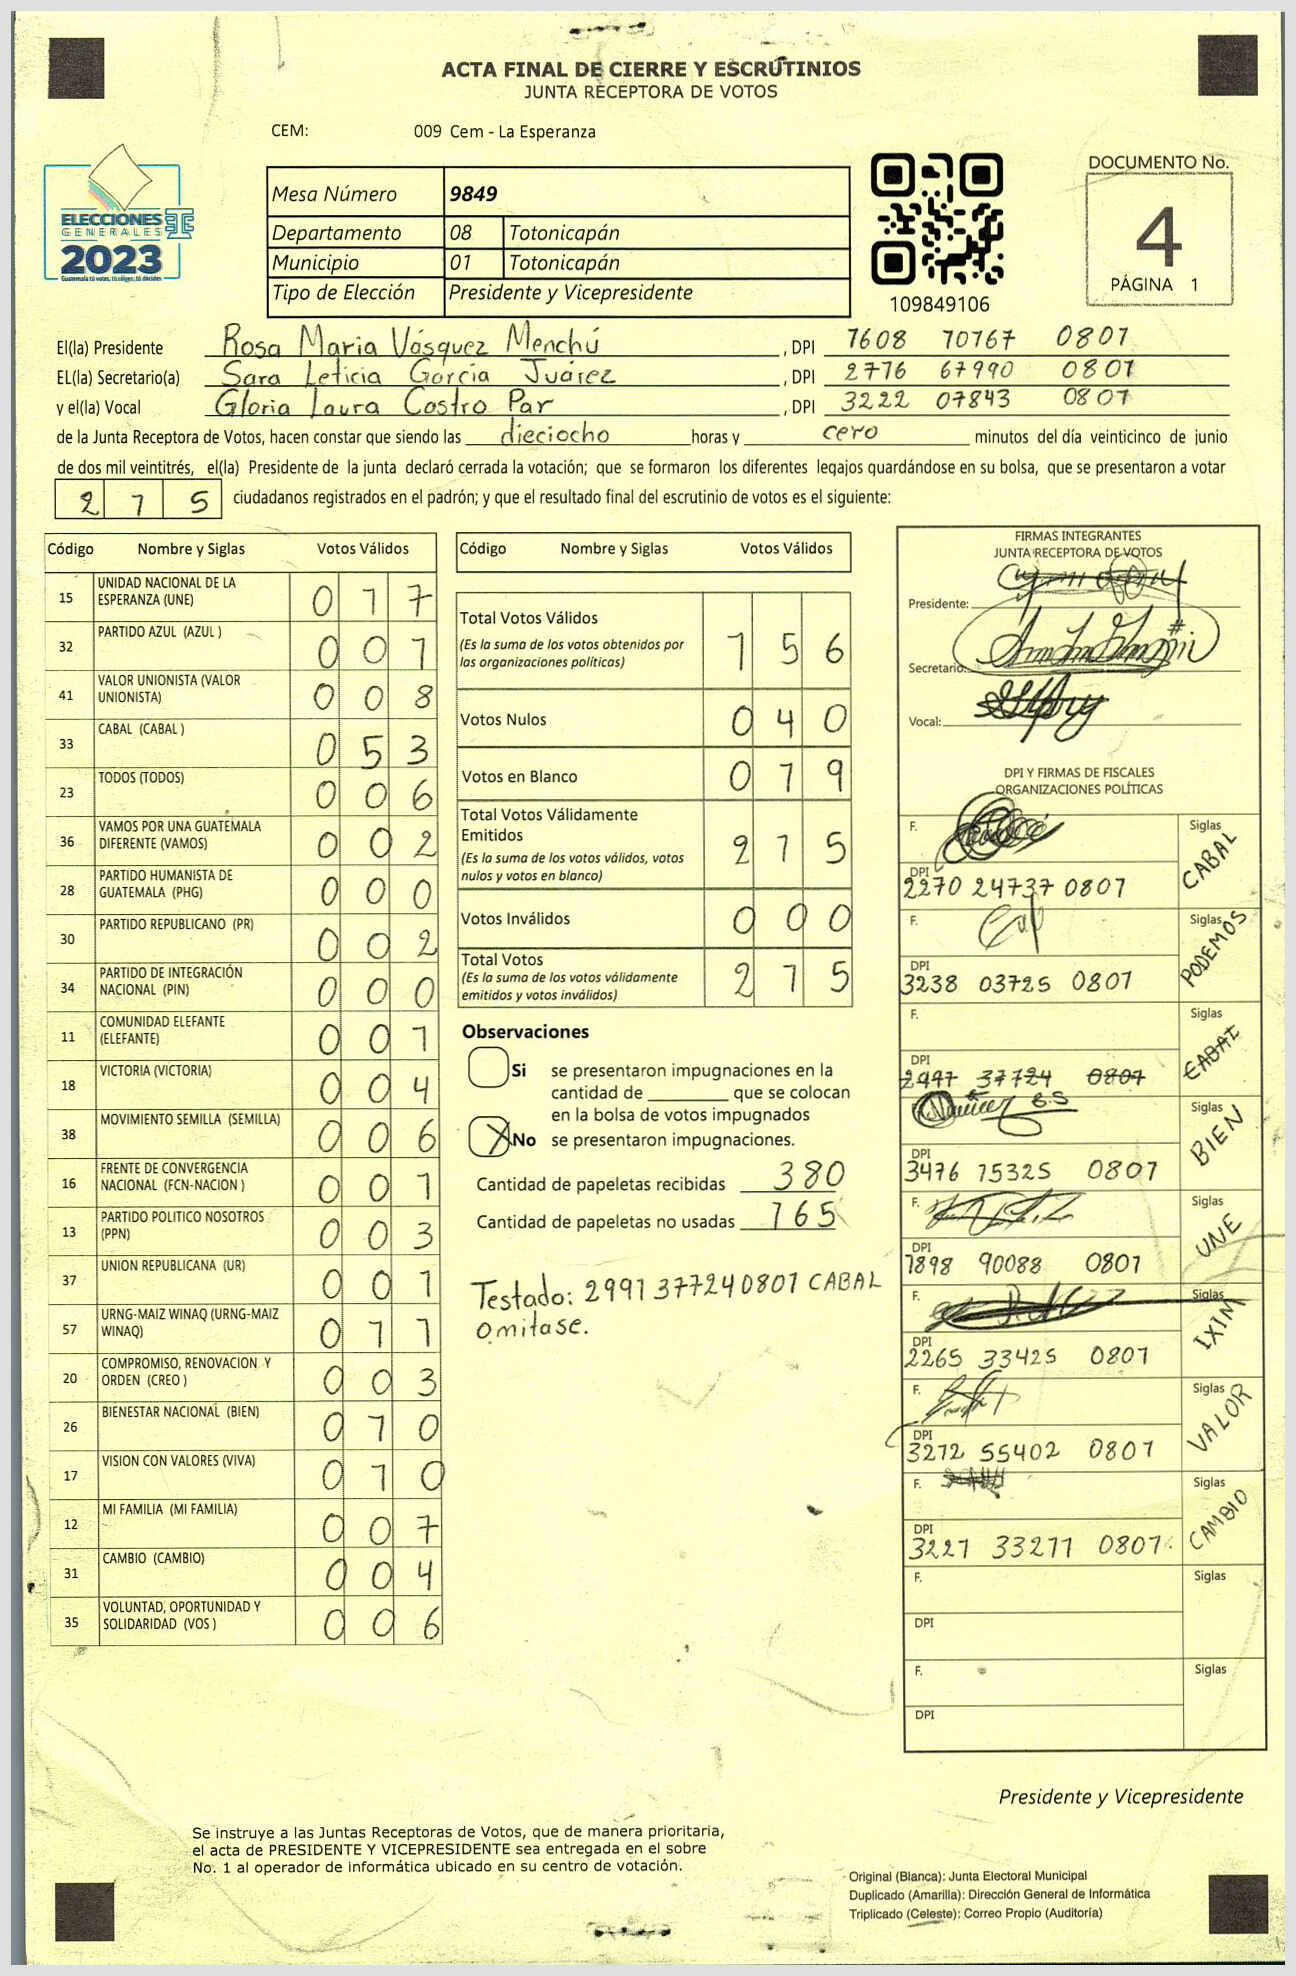 ACTA FINAL DE CIERRE Y ESCRUTINIOS
JUNTA RECEPTORA DE VOTOS
CEM: 009 Cem - La Esperanza
ELECCIONES
GENERALES
2023
Guatemala tú votas, tú eliges, tú decides
Mesa Número 9849
Departamento 08 Totonicapán
Municipio 01 Totonicapán
Tipo de Elección Presidente y Vicepresidente
109849106
DOCUMENTO No.
4
PÁGINA 1
El(la) Presidente Rosa Maria Vásquez Menchú , DPI 1608 10161 0801
EL(la) Secretario(a) Sara Leticia García Juárez , DPI 2116 61990 0801
y el(la) Vocal Gloria Laura Castro Par , DPI 3222 01843 0801
de la Junta Receptora de Votos, hacen constar que siendo las dieciocho horas y cero minutos del día veinticinco de junio
de dos mil veintitrés, el(la) Presidente de la junta declaró cerrada la votación; que se formaron los diferentes legajos guardándose en su bolsa, que se presentaron a votar
215 ciudadanos registrados en el padrón; y que el resultado final del escrutinio de votos es el siguiente:
Código Nombre y Siglas Votos Válidos
15 UNIDAD NACIONAL DE LA ESPERANZA (UNE) 017
32 PARTIDO AZUL (AZUL ) 001
41 VALOR UNIONISTA (VALOR UNIONISTA) 008
33 CABAL (CABAL ) 053
23 TODOS (TODOS) 006
36 VAMOS POR UNA GUATEMALA DIFERENTE (VAMOS) 002
28 PARTIDO HUMANISTA DE GUATEMALA (PHG) 000
30 PARTIDO REPUBLICANO (PR) 002
34 PARTIDO DE INTEGRACIÓN NACIONAL (PIN) 000
11 COMUNIDAD ELEFANTE (ELEFANTE) 001
18 VICTORIA (VICTORIA) 004
38 MOVIMIENTO SEMILLA (SEMILLA) 006
16 FRENTE DE CONVERGENCIA NACIONAL (FCN-NACION ) 001
13 PARTIDO POLITICO NOSOTROS (PPN) 003
37 UNION REPUBLICANA (UR) 001
57 URNG-MAIZ WINAQ (URNG-MAIZ WINAQ) 011
20 COMPROMISO, RENOVACION Y ORDEN (CREO ) 003
26 BIENESTAR NACIONAL (BIEN) 010
17 VISION CON VALORES (VIVA) 010
12 MI FAMILIA (MI FAMILIA) 007
31 CAMBIO (CAMBIO) 004
35 VOLUNTAD, OPORTUNIDAD Y SOLIDARIDAD (VOS ) 006
Código Nombre y Siglas Votos Válidos
Total Votos Válidos 156
(Es la suma de los votos obtenidos por
las organizaciones políticas)
Votos Nulos 040
Votos en Blanco 019
Total Votos Válidamente
Emitidos 215
(Es la suma de los votos válidos, votos
nulos y votos en blanco)
Votos Inválidos 000
Total Votos 215
(Es la suma de los votos válidamente
emitidos y votos inválidos)
Observaciones
Si se presentaron impugnaciones en la
cantidad de ________ que se colocan
en la bolsa de votos impugnados
X No se presentaron impugnaciones.
Cantidad de papeletas recibidas 380
Cantidad de papeletas no usadas 165
Testado: 2991 37724 0801 CABAL
Omitase.
FIRMAS INTEGRANTES
JUNTA RECEPTORA DE VOTOS
Presidente:
Secretario:
Vocal:
DPI Y FIRMAS DE FISCALES
ORGANIZACIONES POLÍTICAS
F. Siglas CABAL
DPI 2210 24737 0801
F. Siglas PODEMOS
DPI 3238 03725 0801
F. Siglas CABAL
DPI 2991 37724 0801
Siglas BIEN
DPI 3476 15325 0801
F. Siglas UNE
DPI 1898 90088 0801
F. Siglas IXIM
DPI 2265 33425 0801
F. Siglas VALOR
DPI 3212 55402 0801
F. Siglas CAMBIO
DPI 3221 33211 0801
F. Siglas
DPI
F. Siglas
DPI
Presidente y Vicepresidente
Se instruye a las Juntas Receptoras de Votos, que de manera prioritaria,
el acta de PRESIDENTE Y VICEPRESIDENTE sea entregada en el sobre
No. 1 al operador de informática ubicado en su centro de votación.
Original (Blanca): Junta Electoral Municipal
Duplicado (Amarilla): Dirección General de Informática
Triplicado (Celeste): Correo Propio (Auditoría)